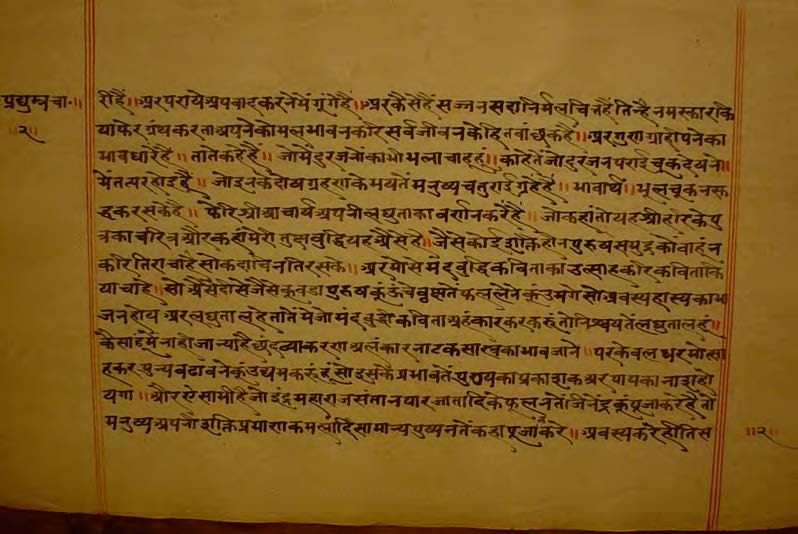 प्रद्युम्नचा॰॥
॥२॥
रीहैं॥ अरपराये अपवादकरनेमें गूंगेहैं॥ अरकैसेहैं सज्जन सदा निर्मलचितहैं तिन्हैं नमस्कारकि
या फेर ग्रंथकरता अपने कोमलभावनकरि सर्वजीवनकेहितवांछकहै॥ अरगुणग्राहीपनेका
भावधारेहै॥ तातेकहेहै॥ जोमेंदुरजनोंकाभीभलाचाहूहूं॥ काहेतेंजोदुरजनपराईचूकदेखने॥
मेंतत्परहोइहै॥ जोइनकेदोषग्रहणकेभयतेंमनुष्यचतुराईग्रहेहै॥ भावार्थ॥ भूलचूकनस्क
द्वकरसकेहै॥ फेरिश्रीआचार्यअपनीलघुताकावर्णनकरेहै॥ जोकहांतोयहश्रीहरिकेपु
त्रकाचरित्रऔरकहांमेरीतुच्छबुद्धियहऐसेहै॥ जैसेकोईशक्तिहीनपुरुषसमुद्रकोंबाहन
करितिराचाहैसोकदाचिनतिरसके॥ अरमोसेमंदबुद्धिकविताकाउत्साहकरिकविताकि
याचाहै॥ सोऐसेदीसेजैसेकूबडापुरुषकूंऊंचेवृक्षतेंफललेनेकूंउमगेसोअवस्यहास्यकाभा
जनहोयअरलघुतालहेतातेंमेंजोमंदबुद्धीकविताअहंकारकरकरूंतोनिश्चयतेंलघुतालहूं॥
कैसाहूंमेंनाहीजान्याहैछंदव्याकरणअलंकारनाटकसास्त्रकाभावजाने॥ परकेवलधरमोत्सा
हकरपुन्यबढावनेकूंउद्यमकरूंहूंसोइसकेप्रभावतेंपुण्यकाप्रकाशकअरपापकानाशहो
यगा॥ औरऐसाभीहैजोइंद्रमहाराजसंतानपारजातादिकेफूलनतेंजिनेंद्रकूंपूजाकरेहैतो
मनुष्यअपनीशक्तिप्रमाणकमलादिसामान्यपुष्पनतेंकहापूजानकरे॥ अवस्यकरेहीतिस
॥२॥